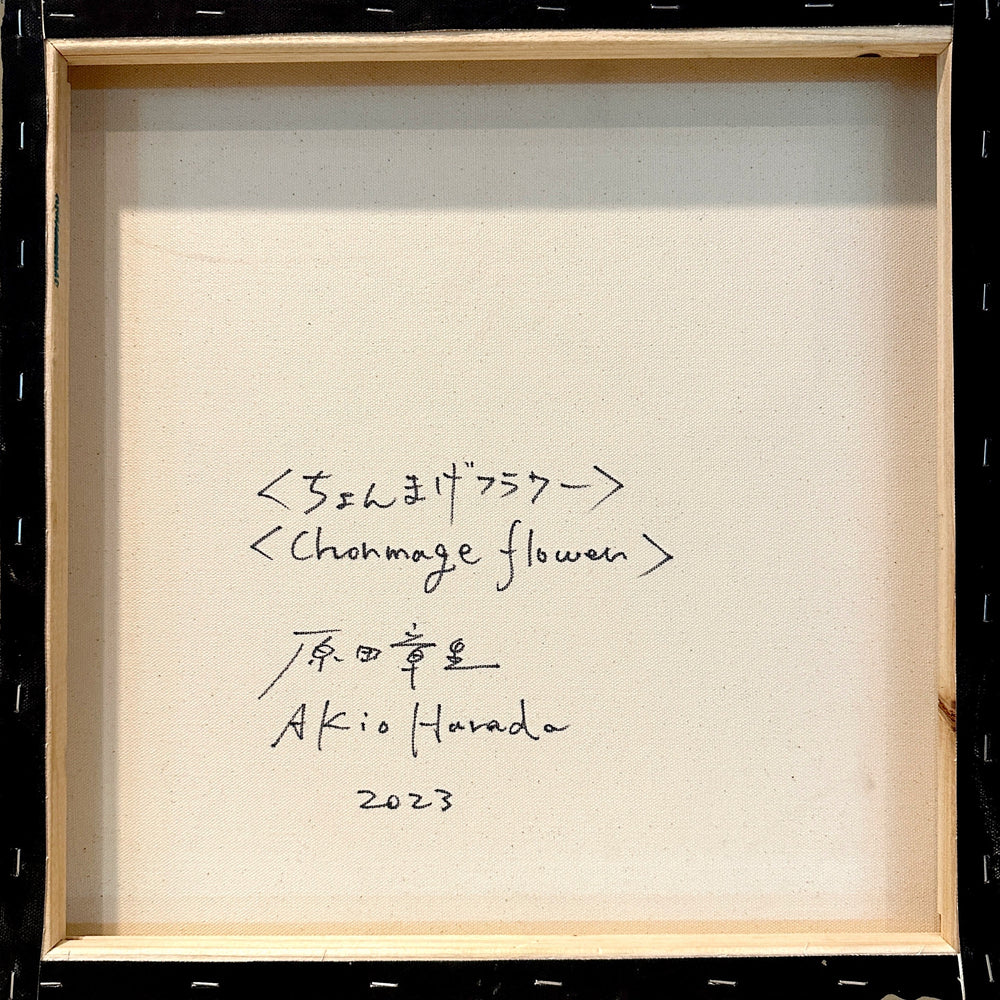 <ちょんまげフラワー>
<Chonmage flower>
原田章生
Akio Harada
2023